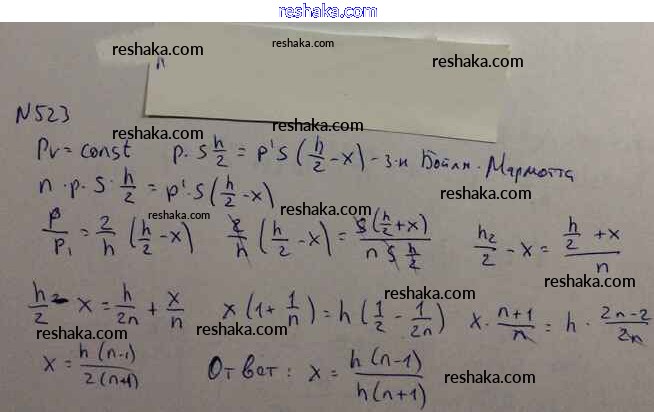 reshaka.com
reshaka.com
reshaka.com
reshaka.com
reshaka.com
N 523
reshaka.com reshaka.com
Pv = const p · S h/2 = p' S (h/2 - x) - з-н Бойля · Мармотта
reshaka.com
n · p · S · h/2 = p' · S (h/2 - x)
reshaka.com
reshaka.com reshaka.com
p/p1 = 2/h (h/2 - x) 2/h (h/2 - x) = S (h/2 + x) / n S h/2 h2/2 - x = (h/2 + x)/n
reshaka.com
reshaka.com
h/2 - x = h/2n + x/n x (1 + 1/n) = h (1/2 - 1/2n) x · (n+1)/n = h · (2n-2)/2n
reshaka.com reshaka.com
reshaka.com
x = h (n-1) / 2 (n+1) Ответ: x = h (n-1) / h (n+1)
reshaka.com
reshaka.com
reshaka.com